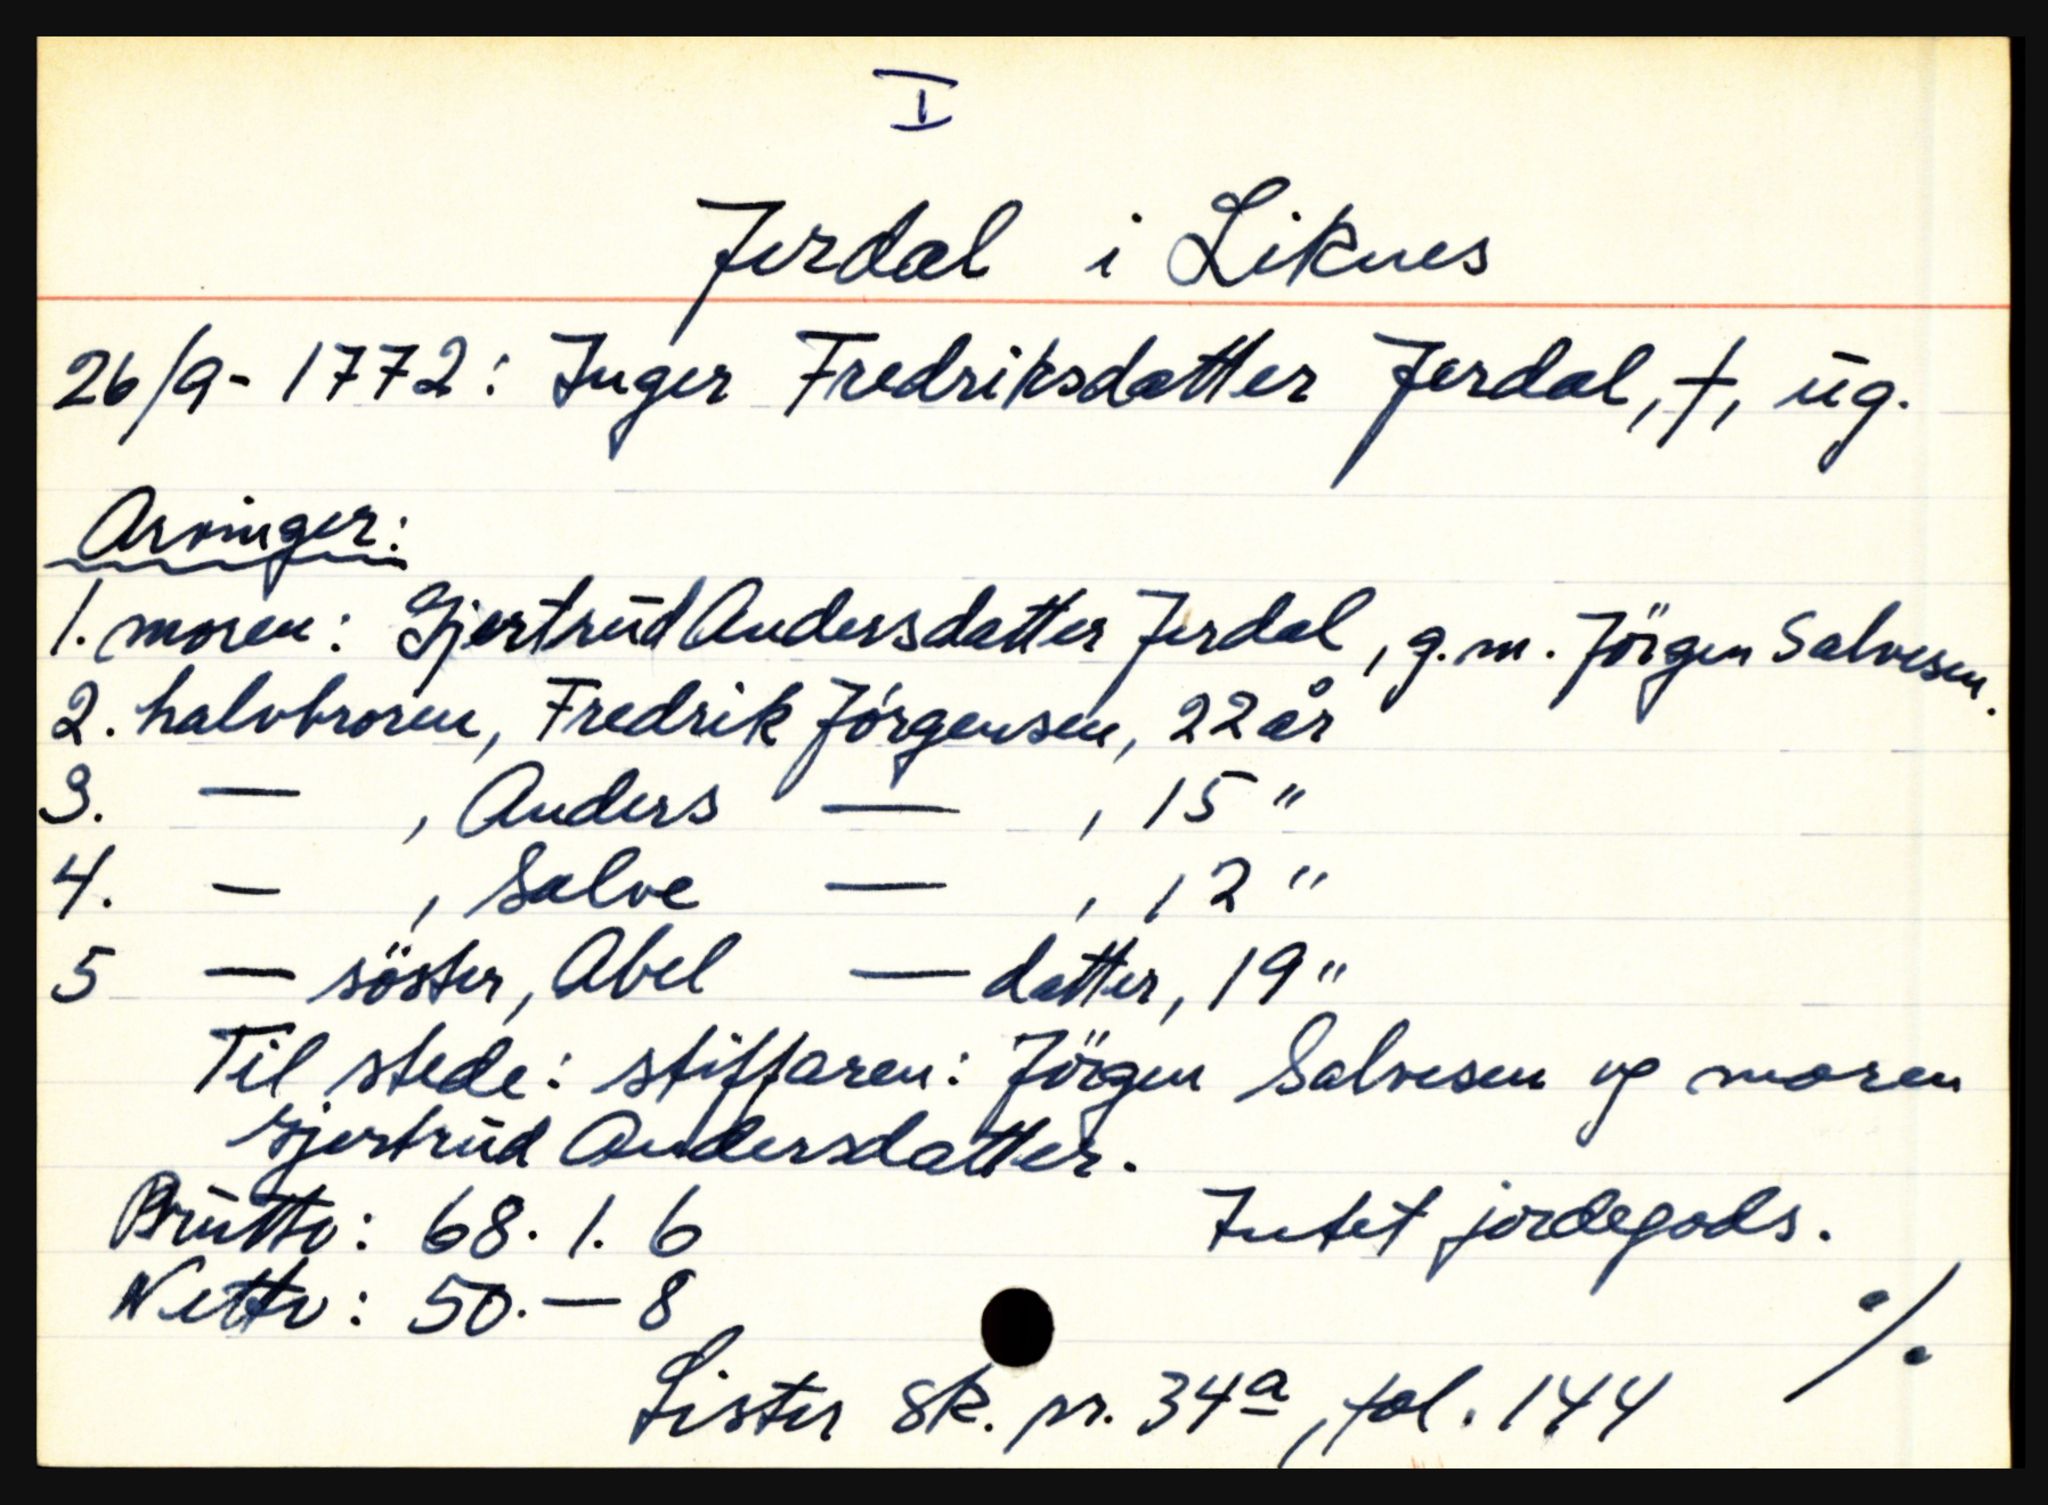 I
Jerdal i Liknes
26/9- 1772: Inger Fredriksdatter Jerdal, †, ūg.
Arvinger:
1. moren: Gjertrūd Andersdatter Jerdal, g.m. Jörgen Salvesen.
2. halvbroren, Fredrik Jörgensen, 22 år
3. — , Anders — , 15 "
4. — , Salve — , 12 "
5 — söster, Abel — datter, 19 "
Til stede: stiffaren: Jörgen Salvesen og moren
Gjertrūd Andersdatter.
Brūtto: 68. 1. 6 Intet jordegods.
Netto: 50. — 8
./.
Lister sk. pr. 34a, fol. 144